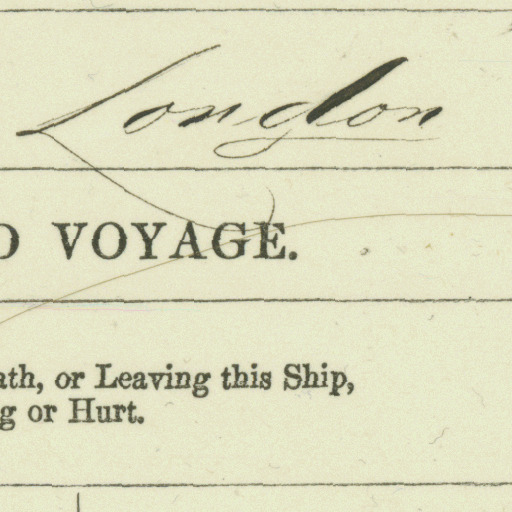 London
D VOYAGE.
ath, or Leaving this Ship,
g or Hurt.